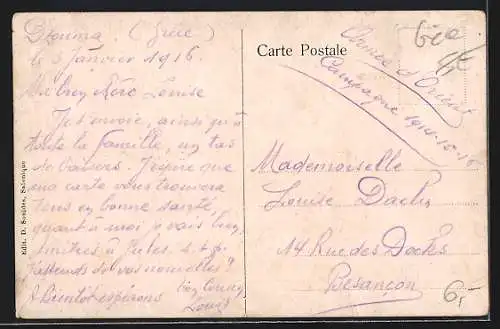 Douma. (Grèce)
le 3 Janvier 1916.
Ma bien chère Louise
Je t'envoie, ainsi qu'à
toute la famille, un tas
de baisers. J'espère que
ma carte vous trouvera
tous en bonne santé
quant à moi je vais bien,
à Jules.
J'attends de vos nouvelles?
A Bientôt espérons
Louis
Edit. D. Salonique
Carte Postale
60c
Armée d'Orient
Campagne 1914-15-16
Mademoiselle
Louise Dachs
14 Rue des Docks
Besançon
6,-